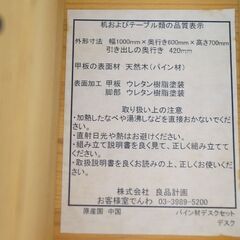 机およびテーブル類の品質表示
外形寸法 幅1000mm×奥行き600mm×高さ700mm
引き出しの奥行き 420mm
甲板の表面材 天然木(パイン材)
表面加工 甲板 ウレタン樹脂塗装
脚部 ウレタン樹脂塗装
取り扱い上の注意
・加熱したなべや湯沸しなどを直接おかないでください。
・直射日光や熱はお避けください。
・組み立て説明書を良く見て、正しく組み立ててください。
・取扱説明書を良くお読みの上、正しくお使いください。
株式会社 良品計画
お客様室でんわ 03-3989-5200
原産国 中国
パイン材デスクセット
デスク